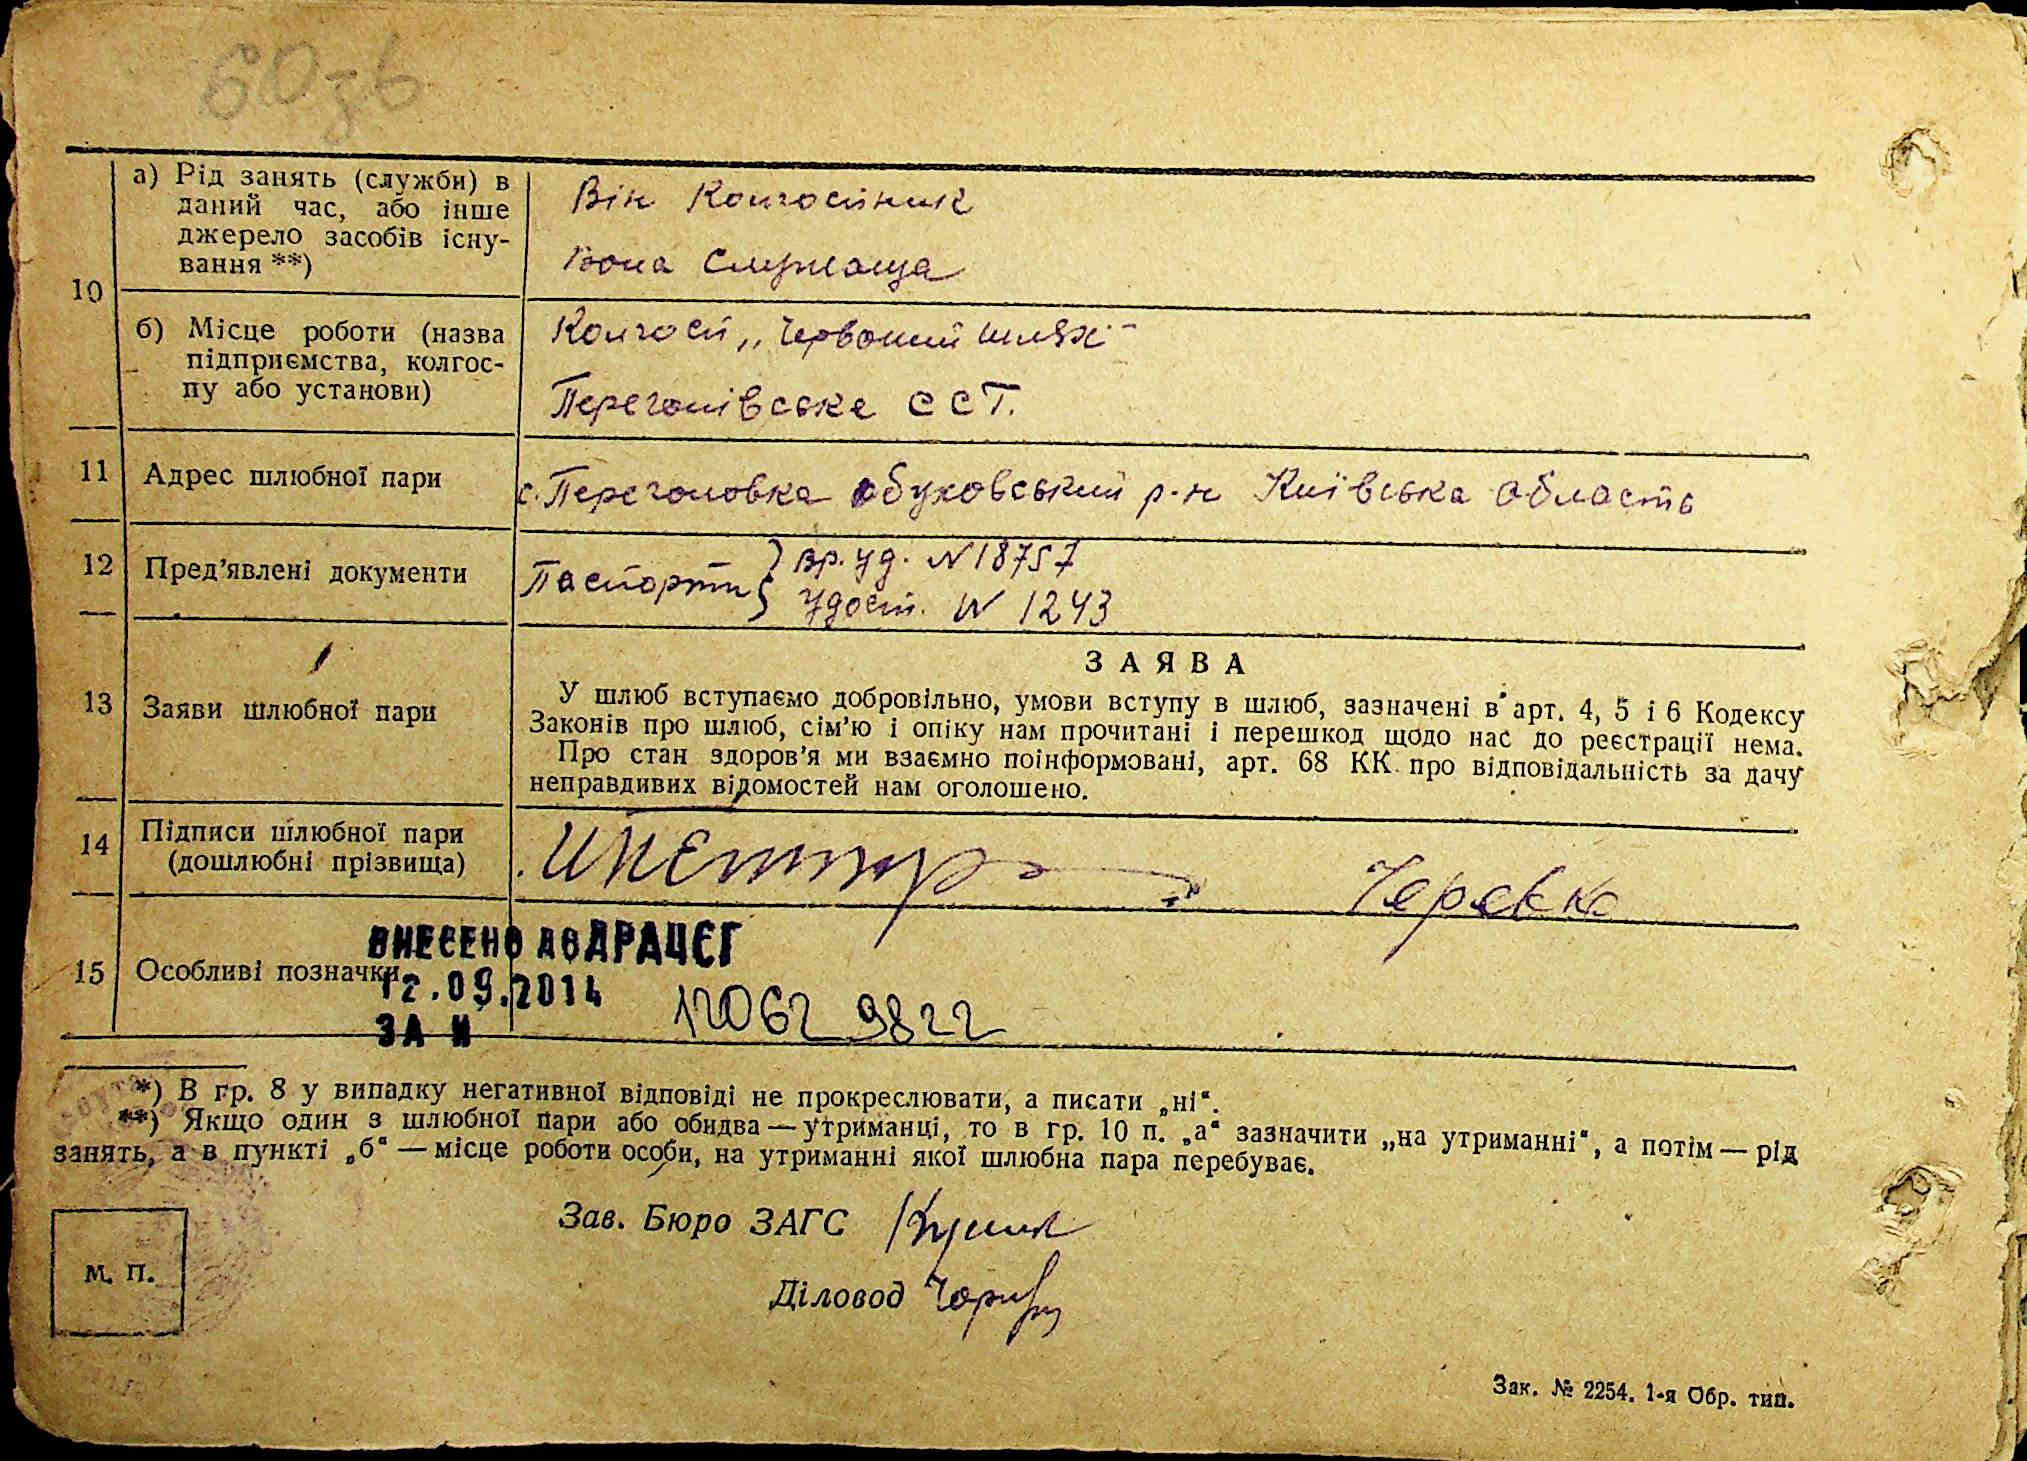 60зв
а) Рід занять (служби) в
даний час, або інше
джерело засобів існу-
вання **)
Він Колгоспник
Вона Служаща
10
б) Місце роботи (назва
підприємства, колгос-
пу або установи)
Колгосп „Червоний шлях"
Перегонівське ССТ.
11 Адрес шлюбної пари
с. Перегоновка Обуховський р-н Київська область
12 Пред’явлені документи
Паспорти } Вр. уд. N 18757
Удост. N 1243
13 Заяви шлюбної пари
ЗАЯВА
У шлюб вступаємо добровільно, умови вступу в шлюб, зазначені в арт. 4, 5 і 6 Кодексу
Законів про шлюб, сім’ю і опіку нам прочитані і перешкод щодо нас до реєстрації нема.
Про стан здоров’я ми взаємно поінформовані, арт. 68 КК про відповідальність за дачу
неправдивих відомостей нам оголошено.
14 Підписи шлюбної пари
(дошлюбні прізвища)
15 Особливі позначки
ВНЕСЕНО ДО ДРАЦСГ
12.09.2014
ЗА N 12062 9822
*) В гр. 8 у випадку негативної відповіді не прокреслювати, а писати „ні“.
**) Якщо один з шлюбної пари або обидва — утриманці, то в гр. 10 п. „а“ зазначити „на утриманні“, а потім — рід
занять, а в пункті „б“ — місце роботи особи, на утриманні якої шлюбна пара перебуває.
Зав. Бюро ЗАГС
М. П.
Діловод
Зак. № 2254. 1-я Обр. тип.